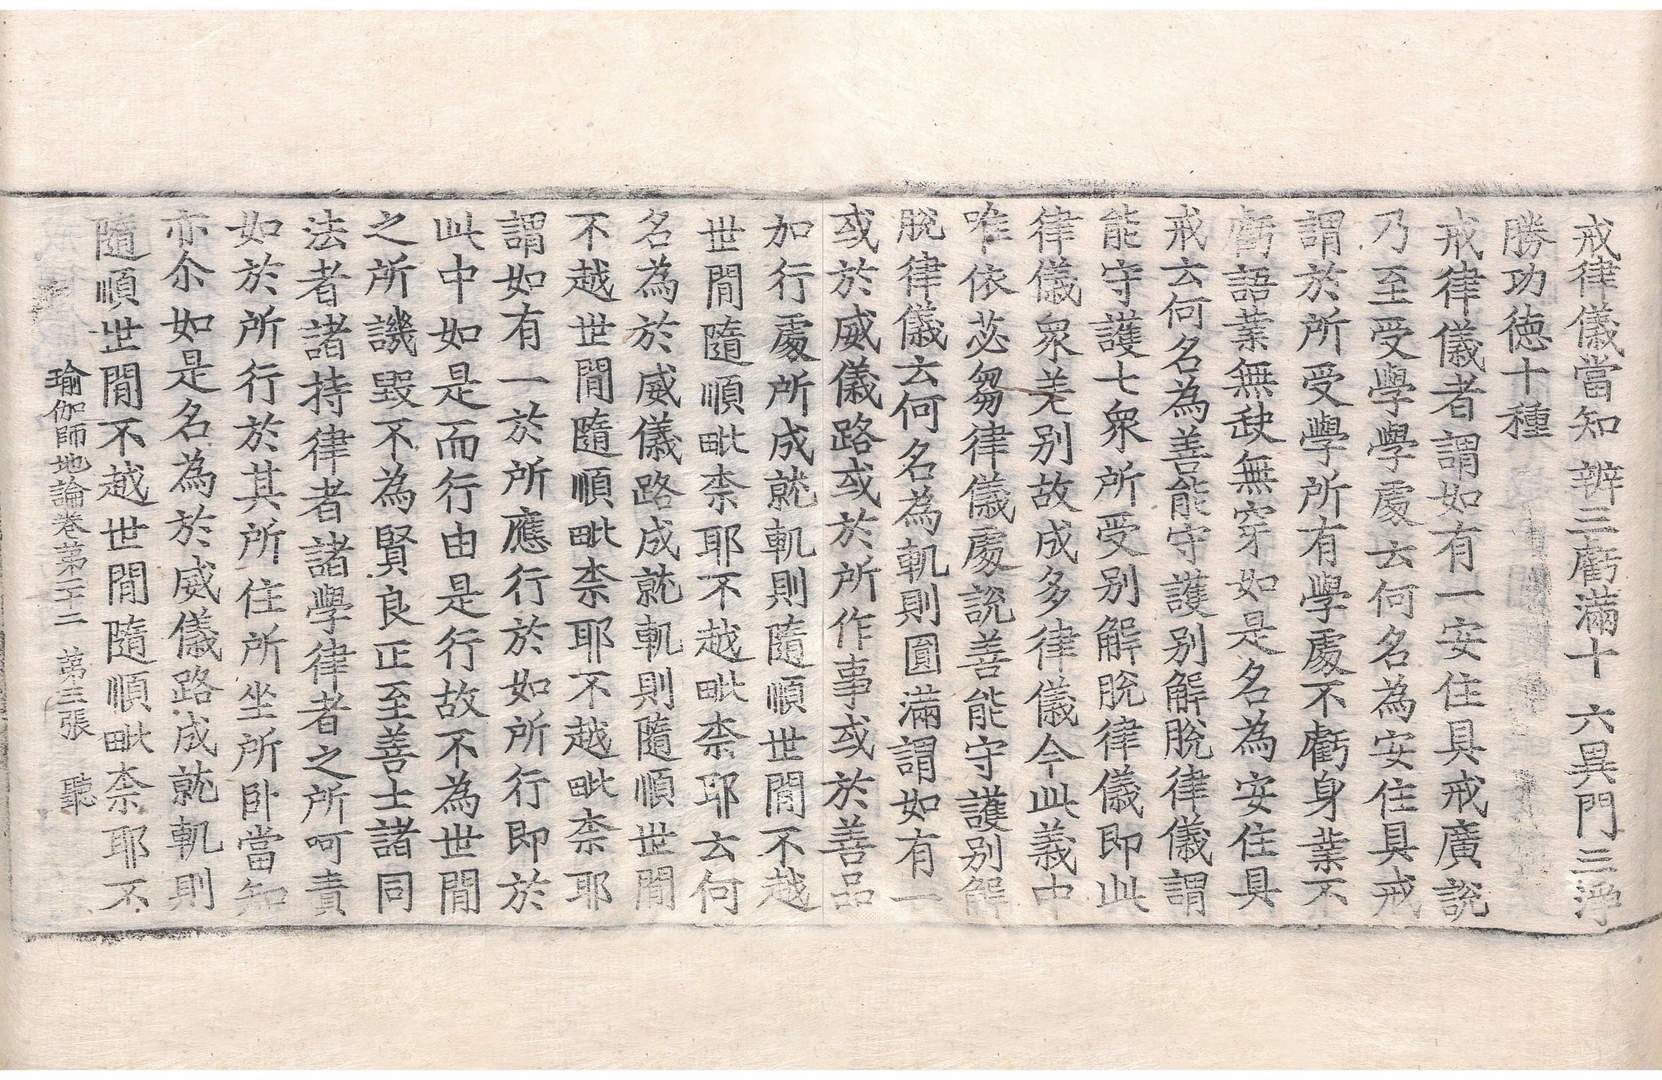 戒律儀當知 辨三虧滿十 六異門三淨
勝功德十種
戒律儀者謂如有一安住具戒廣說
乃至受學學處云何名為安住具戒
謂於所受學所有學處不虧身業不
虧語業無缺無穿如是名為安住具
戒云何名為善能守護別解脫律儀謂
能守護七衆所受別解脫律儀即此
律儀衆差別故成多律儀今此義中
唯依苾芻律儀處說善能守護別解
脫律儀云何名為軌則圓滿謂如有一
或於威儀路或於所作事或於善品
加行處所成就軌則隨順世間不越
世間隨順毗柰耶不越毗柰耶云何
名為於威儀路成就軌則隨順世間
不越世間隨順毗柰耶不越毗柰耶
謂如有一於所應行於如所行即於
此中如是而行由是行故不為世間
之所譏毀不為賢良正至善士諸同
法者諸持律者諸學律者之所呵責
如於所行於其所住所坐所卧當知
亦尒如是名為於威儀路成就軌則
隨順世間不越世間隨順毗柰耶不
瑜伽師地論卷第二十二 第三張 聽